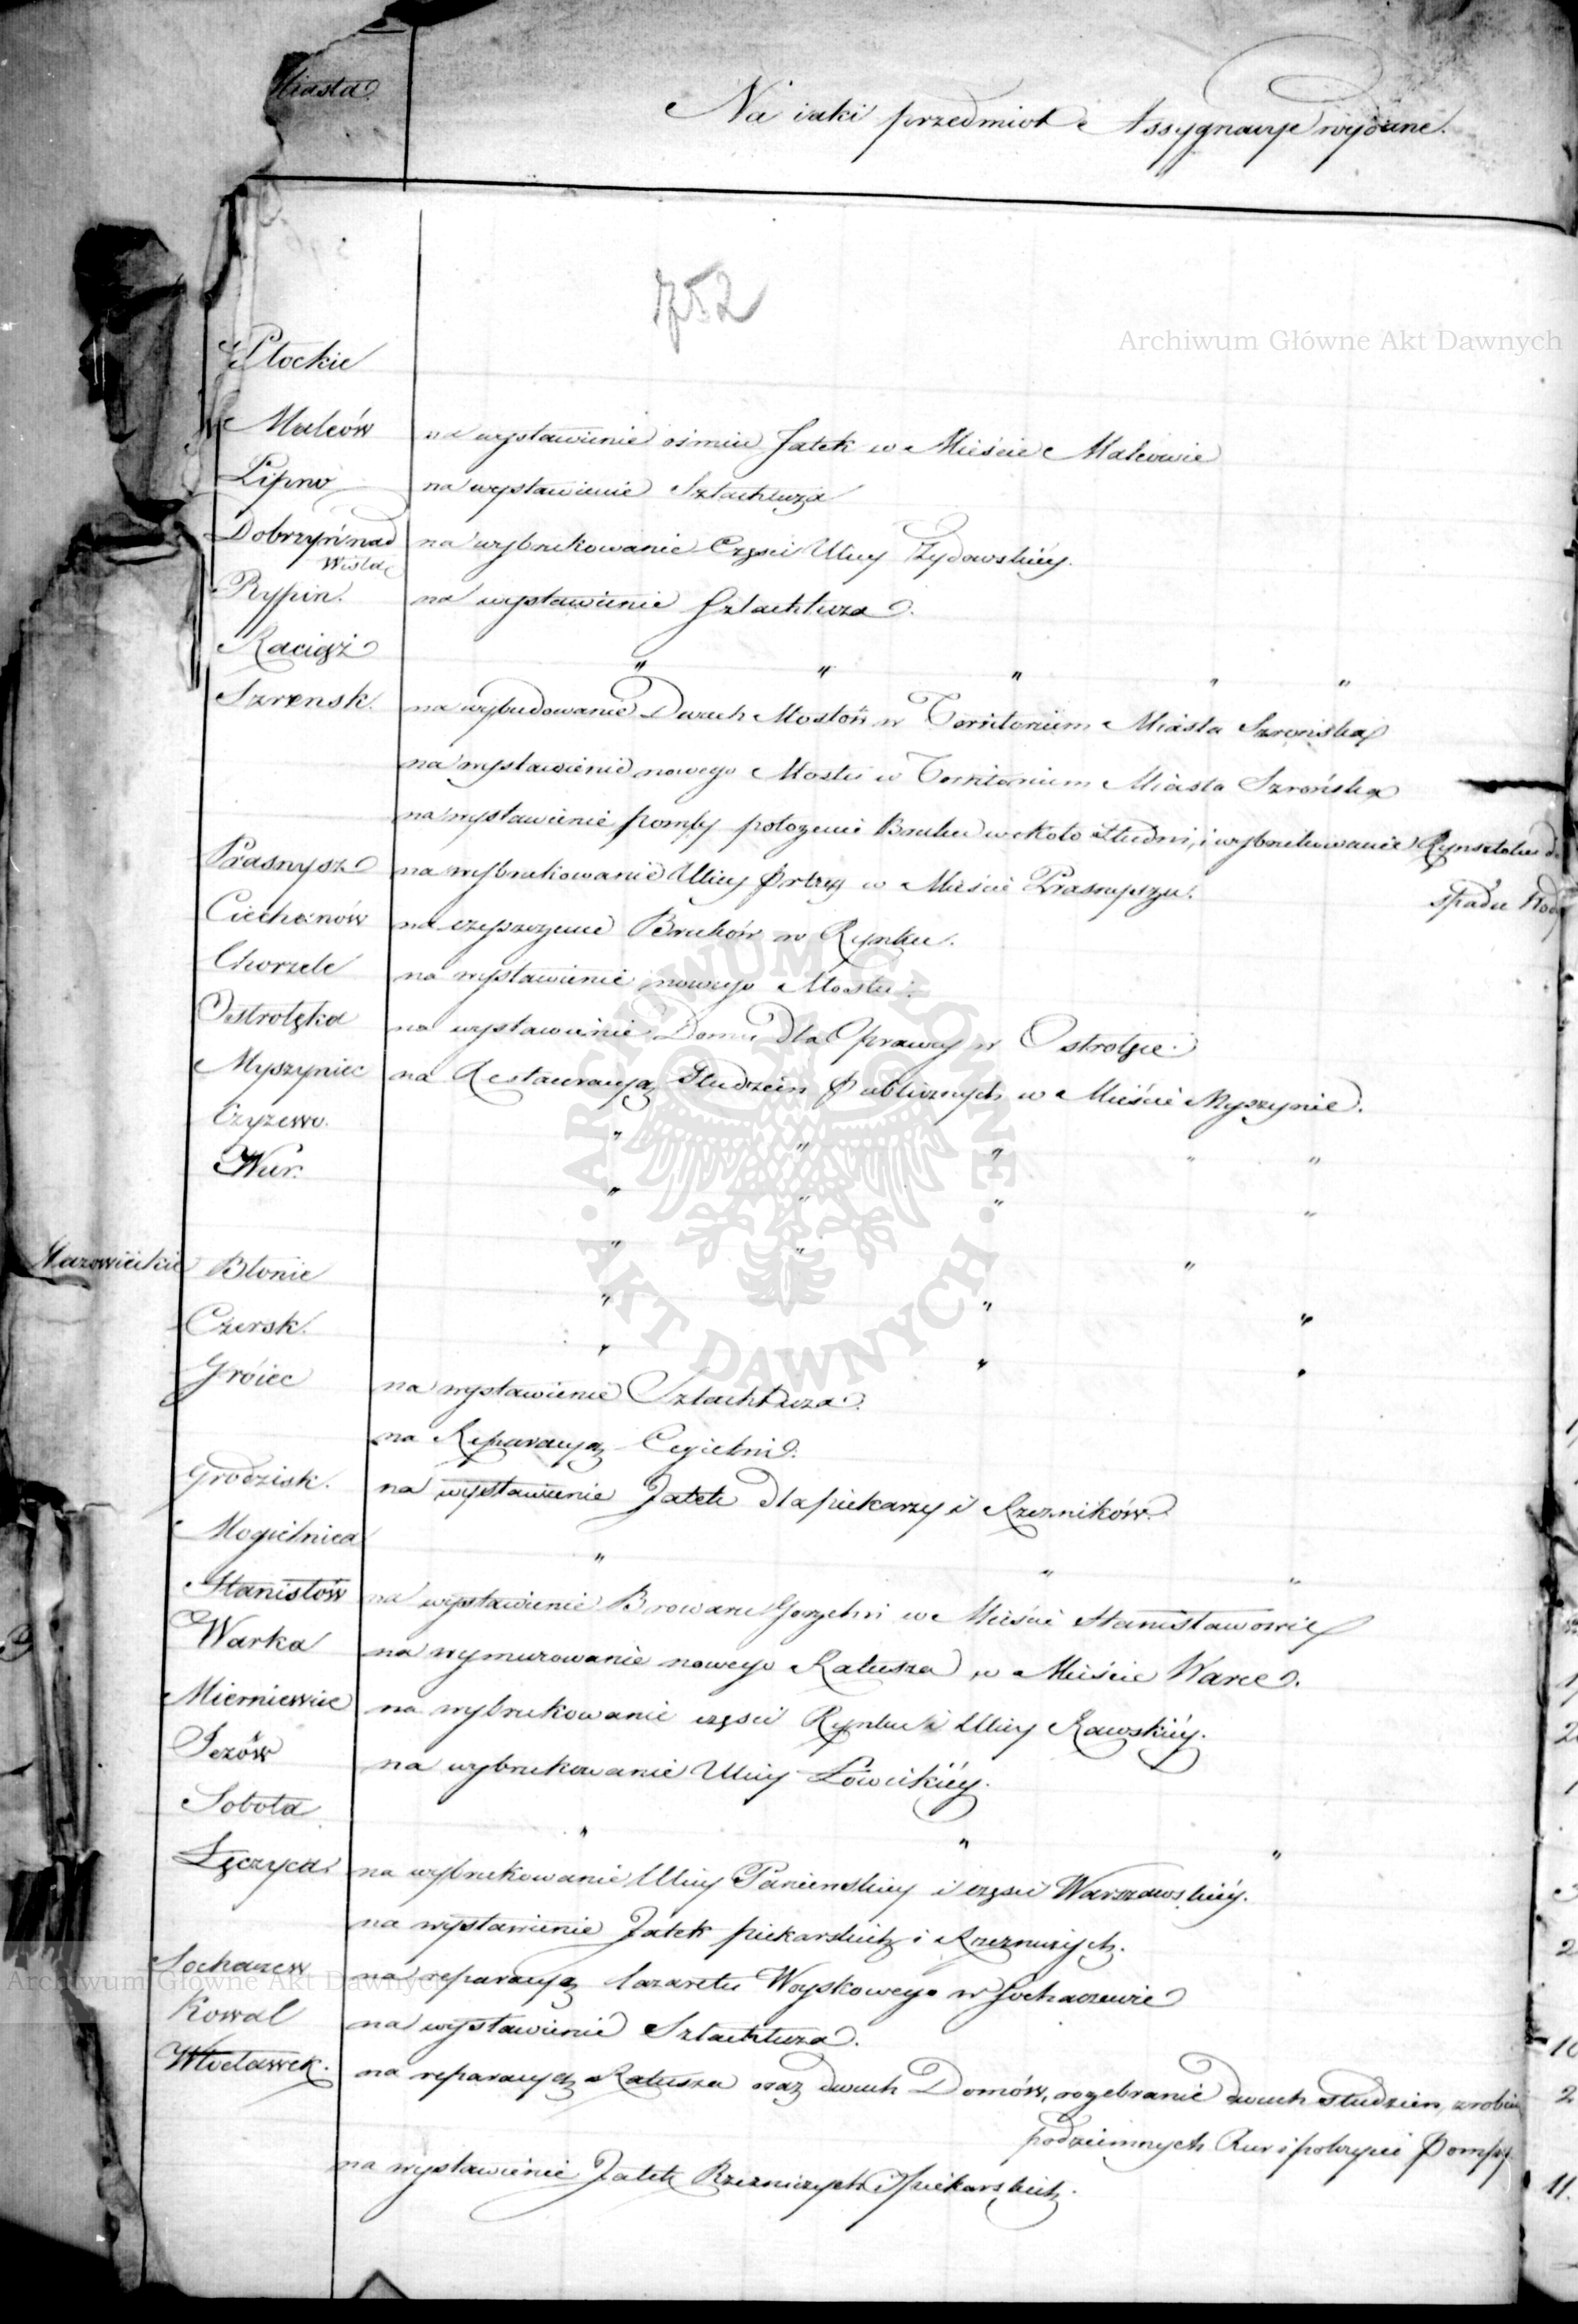 Miasta
Na iaki przedmiot Assygnacye wydane.
752
Archiwum Główne Akt Dawnych
Płockie
Maków na wystawienie ośmiu Jatek w Mieście Makowie
Lipno na wystawienie Szlachtuza
Dobrzyń nad Wisłą na wybrukowanie Częsci Ulicy Żydowskiéy.
Rypin. na wystawienie Szlachtuza.
Raciąż " " " " "
Szrensk. na wybudowanie Dwuch Mostów w Territorium Miasta Szrońska
na wystawienie nowego Mostu w Territorium Miasta Szrońska
na wystawienie pompy położenie Bruku wokoło Studni, i wybrukowanie Rynsztoku d
spadu Wody
Prasnysz na wybrukowanie Ulicy w Mieście Prasnyszu.
Ciechanów na czyszczenie Bruków w Rynku.
Chorzele na wystawienie nowego Mostu.
Ostrołęka na wystawienie Domu dla Oprawcy w Ostrołęce.
Myszyniec na Restauracyą Studzien Publicznych w Mieście Myszyńcu.
Czyżewo. " " " " "
Nur. " " " "
" " "
Mazowieckie Błonie " " "
Czersk. " " "
Gróiec na wystawienie Szlachtuza.
na Reparacyą Cegielni.
Grodzisk. na wystawienie Jatek dla piekarzy i Rzezników.
Mogielnica " " "
Stanisłów na wystawienie Browaru Gorzelni w Mieście Stanisławowie
Warka na wymurowanie nowego Ratusza w Mieście Warce.
Mierniewice na wybrukowanie częsci Rynku i Ulicy Rawskiéy.
Jeżów na wybrukowanie Ulicy Łowickiéy.
Sobota " " "
Łęczyca. na wybrukowanie Ulicy Panienskiey i częsci Warszawskiéy.
na wystawienie Jatek piekarskich i Rzezniczych.
Sochaczew na reparacyą Lazaretu Woyskowego w Sochaczewie
Archiwum Główne Akt Dawnych
Kowal na wystawienie Szlachtuza.
Włocławek. na reparacyą Ratusza oraz dwuch Domów, rozebranie dwuch studzien, zrobie
podziemnych Rur i pokrycie Pompy.
na wystawienie Jatek Rzezniczych i piekarskich.
ARCHIWUM GŁÓWNE · AKT DAWNYCH ·